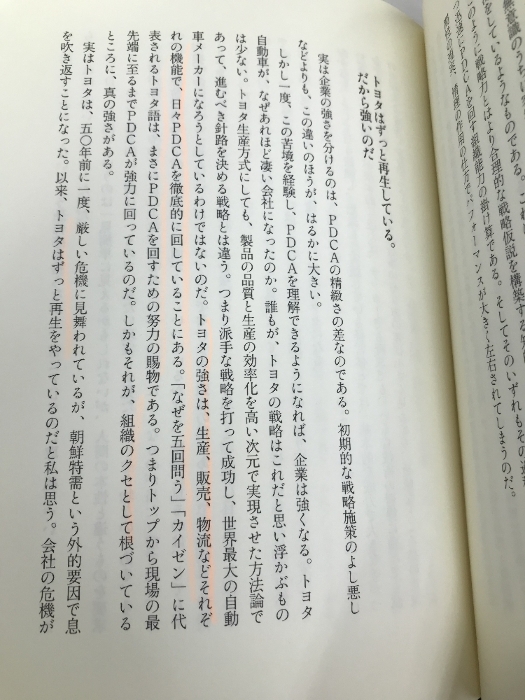 無意識のうちに
をしているようなものである。
このように戦略力とはより合理的な戦略仮説を構築する
PDCAを回す組織能力の掛け算である。そしてそのいずれもその
パフォーマンスが大きく左右されてしまうのだ。
トヨタはずっと再生している。
だから強いのだ
実は企業の強さを分けるのは、PDCAの精緻さの差なのである。初期的な戦略施策のよし悪し
などよりも、この違いのほうが、はるかに大きい。
しかし一度、この苦境を経験し、PDCAを理解できるようになれば、企業は強くなる。トヨタ
自動車が、なぜあれほど凄い会社になったのか。誰もが、トヨタの戦略はこれだと思い浮かぶもの
は少ない。トヨタ生産方式にしても、製品の品質と生産の効率化を高い次元で実現させた方法論で
あって、進むべき針路を決める戦略とは違う。つまり派手な戦略を打って成功し、世界最大の自動
車メーカーになろうとしているわけではないのだ。トヨタの強さは、生産、販売、物流などそれぞ
れの機能で、日々PDCAを徹底的に回していることにある。「なぜを五回問う」「カイゼン」に代
表されるトヨタ語は、まさにPDCAを回すための努力の賜物である。つまりトップから現場の最
先端に至るまでPDCAが強力に回っているのだ。しかもそれが、組織のクセとして根づいている
ところに、真の強さがある。
実はトヨタは、五〇年前に一度、厳しい危機に見舞われているが、朝鮮特需という外的要因で息
を吹き返すことになった。以来、トヨタはずっと再生をやっているのだと私は思う。会社の危機が